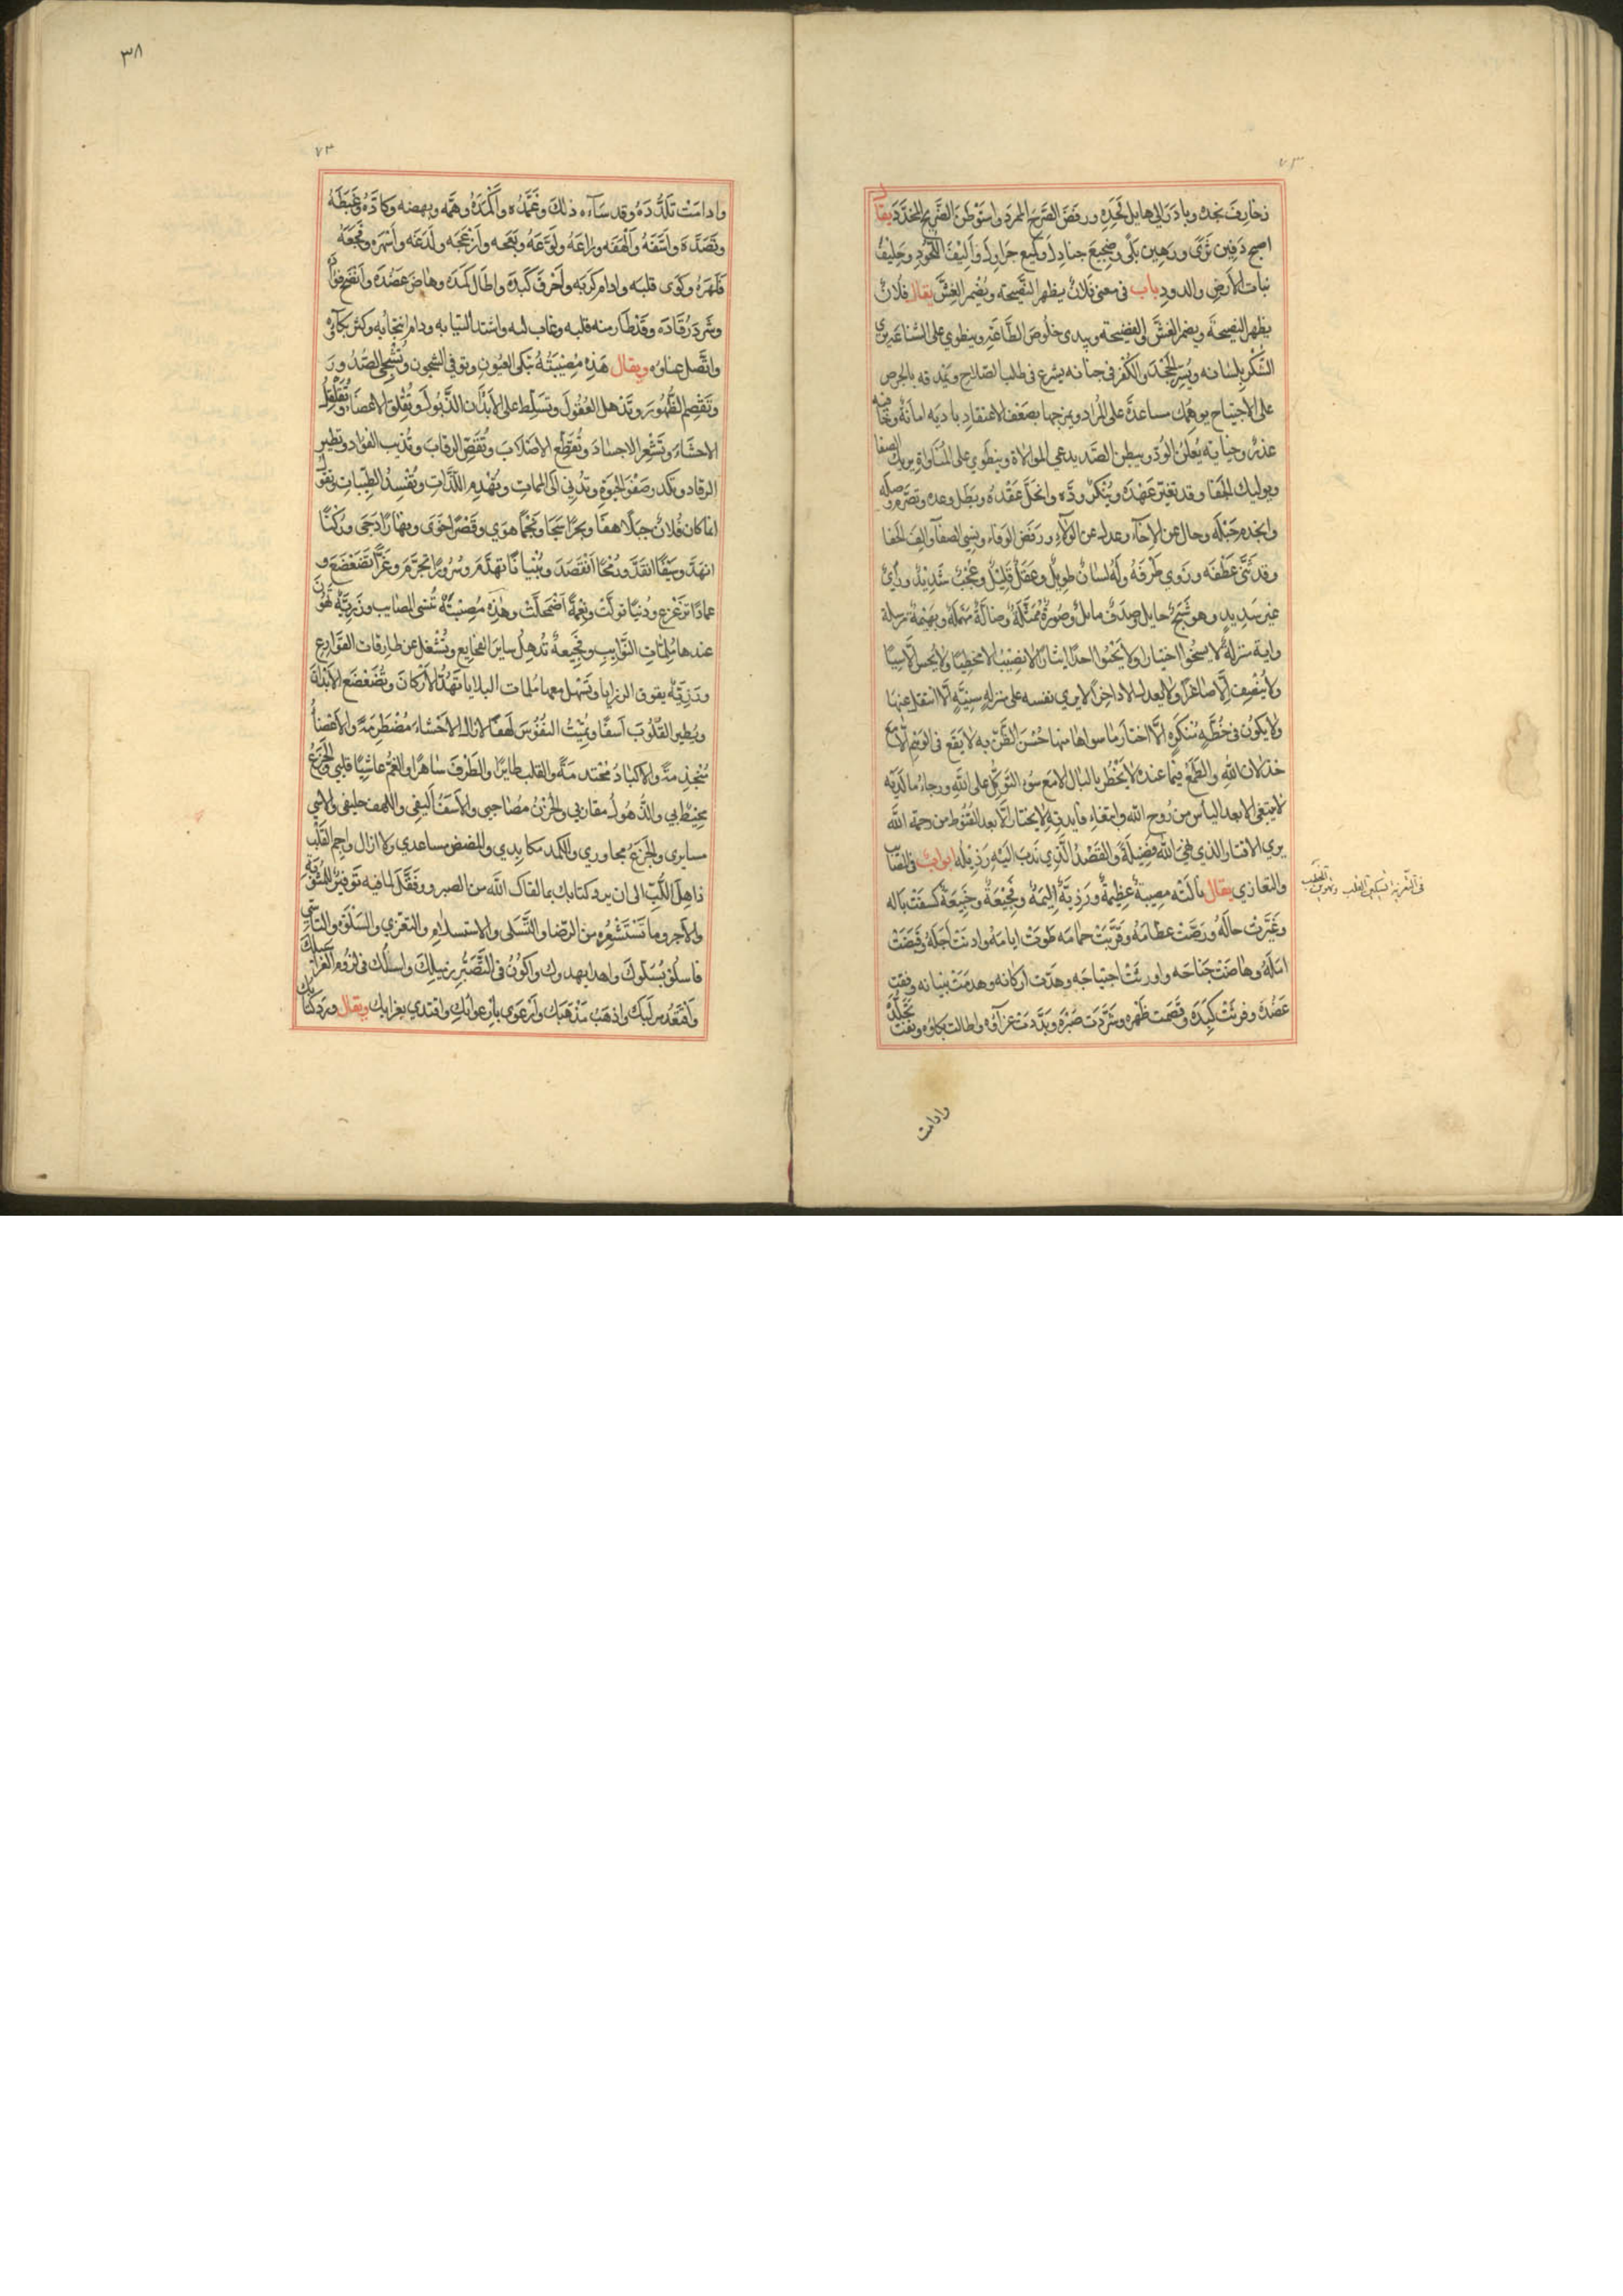 زخارف نجده وبادر الى هايل لحده ورفض الصرح الممرد واستوطن الضريح المخدد يقال
اصبح دفين ثرى ورهين بلى وضجيع جنادل وكميع جراول واليف اللحود وحليف
نبات الارض والدود باب في معنى فلان يظهر النصيحة ويضمر الغش يقال فلان
يظهر النصيحة ويضم الغش الى الفضيحة ويبدى خلوص الطاعة وينطوي على الشناعة يرى
الشكر بلسانه ويسر الجحد والكفر في جنانه يشرع في طلب الصلاح بالحرص
على الاجتياح يوهمك مساعدة على المراد ويمزجها بضعف الاعتقاد باديه امانة وخافيه
غدر وخيانة يعلن الود ويبطن الصد يدعي الموالاة وينطوي على المناواة يريك الصفا
ويوليك الجفا وقد تغير عهده وتنكر وده وانحل عقده وبطل وعده وتصرم وصله
وانجذم حبله وحال عن الاخآء وعدل عن الولاء ورفض الوفاء ونسي الصفا والف الجفا
وقد ثنى عطفه وزوى طرفه وله لسان طويل وعقل قليل وعجب شديد وراى
غير سديد وهو شبح حايل وصدف مايل وصورة ممثلة وضالة مهملة وبهيمة مرسلة
ولا ينصف الا صاغرا ولا يعدل الا داخرا لا يرى نفسه على منزله سنيه الا انتقل عنها
ولا يكون في خطه مستنكره الا اختار ما سواها منها حسن الظن به لا يقع في الوهم الا مع
خذلان الله والطمع فيما عنده لا يخطر بالبال الا مع سوء التوكل على الله ورجاء ما لديه
لا ينبغي الا بعد الياس من روح الله وابتغاء ما يديه لا يختار الا بعد القنوط من رحمة الله
يرى الاقتار الذي نهى الله فضيلة والقصد الذي ندب اليه رذيله ابواب في
والتعازي يقال نالته مصيبة عظيمة ورزية اليمة وفجيعة وجيعة كسفت باله
وغيرت حاله ورضت عظامه وقربت حمامه طوت ايامه وادنت اجله وقبضت
امله وهاضت جناحه واورثت اجتياحه وهدت اركانه وهدمت بنيانه وفتت
عضده وفرثت كبده وقصمت ظهره وشردت صبره وبددت عزآوه واطالت بكاوه ونفت تجلده
في التعزية تسكين القلب
وادامت
٣٨
٧٣
وادامت تلدده وقد سآءه ذلك وغمه واكمده وهمه وبهضه وكاده وغبطه
واسفه والهفه وراعه ولوعه وازعجه ولدغه واسهره وفجعه
وكوى قلبه وادام كربه واحرق كبده واطال كمده وهاض عضده
وشرد رقاده وقد طار منه قلبه وغاب لبه واشتد التيابه ودام انتحابه وكثر بكآؤه
واتصل عناوه ويقال هذه مصيبة تبكى العيون وتوفي الشجون وتشجى الصدور
وتقصم الظهور وتذهل العقول وتسلط على الابدان الذبول وتقلق الاعضاء وتقلقل
الاحشاء وتشعر الاجساد وتقطع الاصلاب وتقص الرقاب وتذيب الفواد وتطير
الرقاد وتكدر صفو الحيوة وتدني الى الممات وتهدم اللذات وتفسد الطيبات
انما كان فلان جبلا هفا وبحرا سجا ونجما هوي وقصرا خوى ونهارا دجى وركنا
انهد وسيفا انقد ورمحا انقصد وبنيانا تهدم وسرورا تجرم وعزا تضعضع و
عمادا تزعزع ودنيا تولت ونعمة اضمحلت وهذه مصيبة تنسى المصايب ورزية تهون
عندها ملمات النوايب وفجيعة تذهل ساير الفجايع وتشغل عن طارقات القوارع
ورزية يفوق الرزايا وتسهل معها ملمات البلايا تهد الاركان وتضعضع
ويطير القلوب اسفا وتميت النفوس لهفا لازال الاحشاء مضطرمة والاعضاء
منجذمة والاكباد محتدمة والقلب طايرا والطرف ساهرا والغم غاشيا قلبي والجزع
محيط بي والذهول مقارني والحزن مصاحبي والاسف اليفي واللهف حليفي والاسى
مسايرى والجزع مجاوري والكمد مكابدي والمضض مساعدي ولا ازال واجم القلب
ذاهل اللب الى ان يرد كتابك بما لقاك الله من الصبر ووفقك لما فيه توفير المثوبة
والاجر وما تستشعره من الرضا والتسلى والاستسلام والتعزي والسلوة والتاسي
فاسلو بسلوك واهدا بهدوك واكون في التصبر من قبلك واسلك في لزوم العزاء سبلك
واذهب مذهبك وارعوى بارعوايك واقتدي بعزايك ويقال ورد كتابك